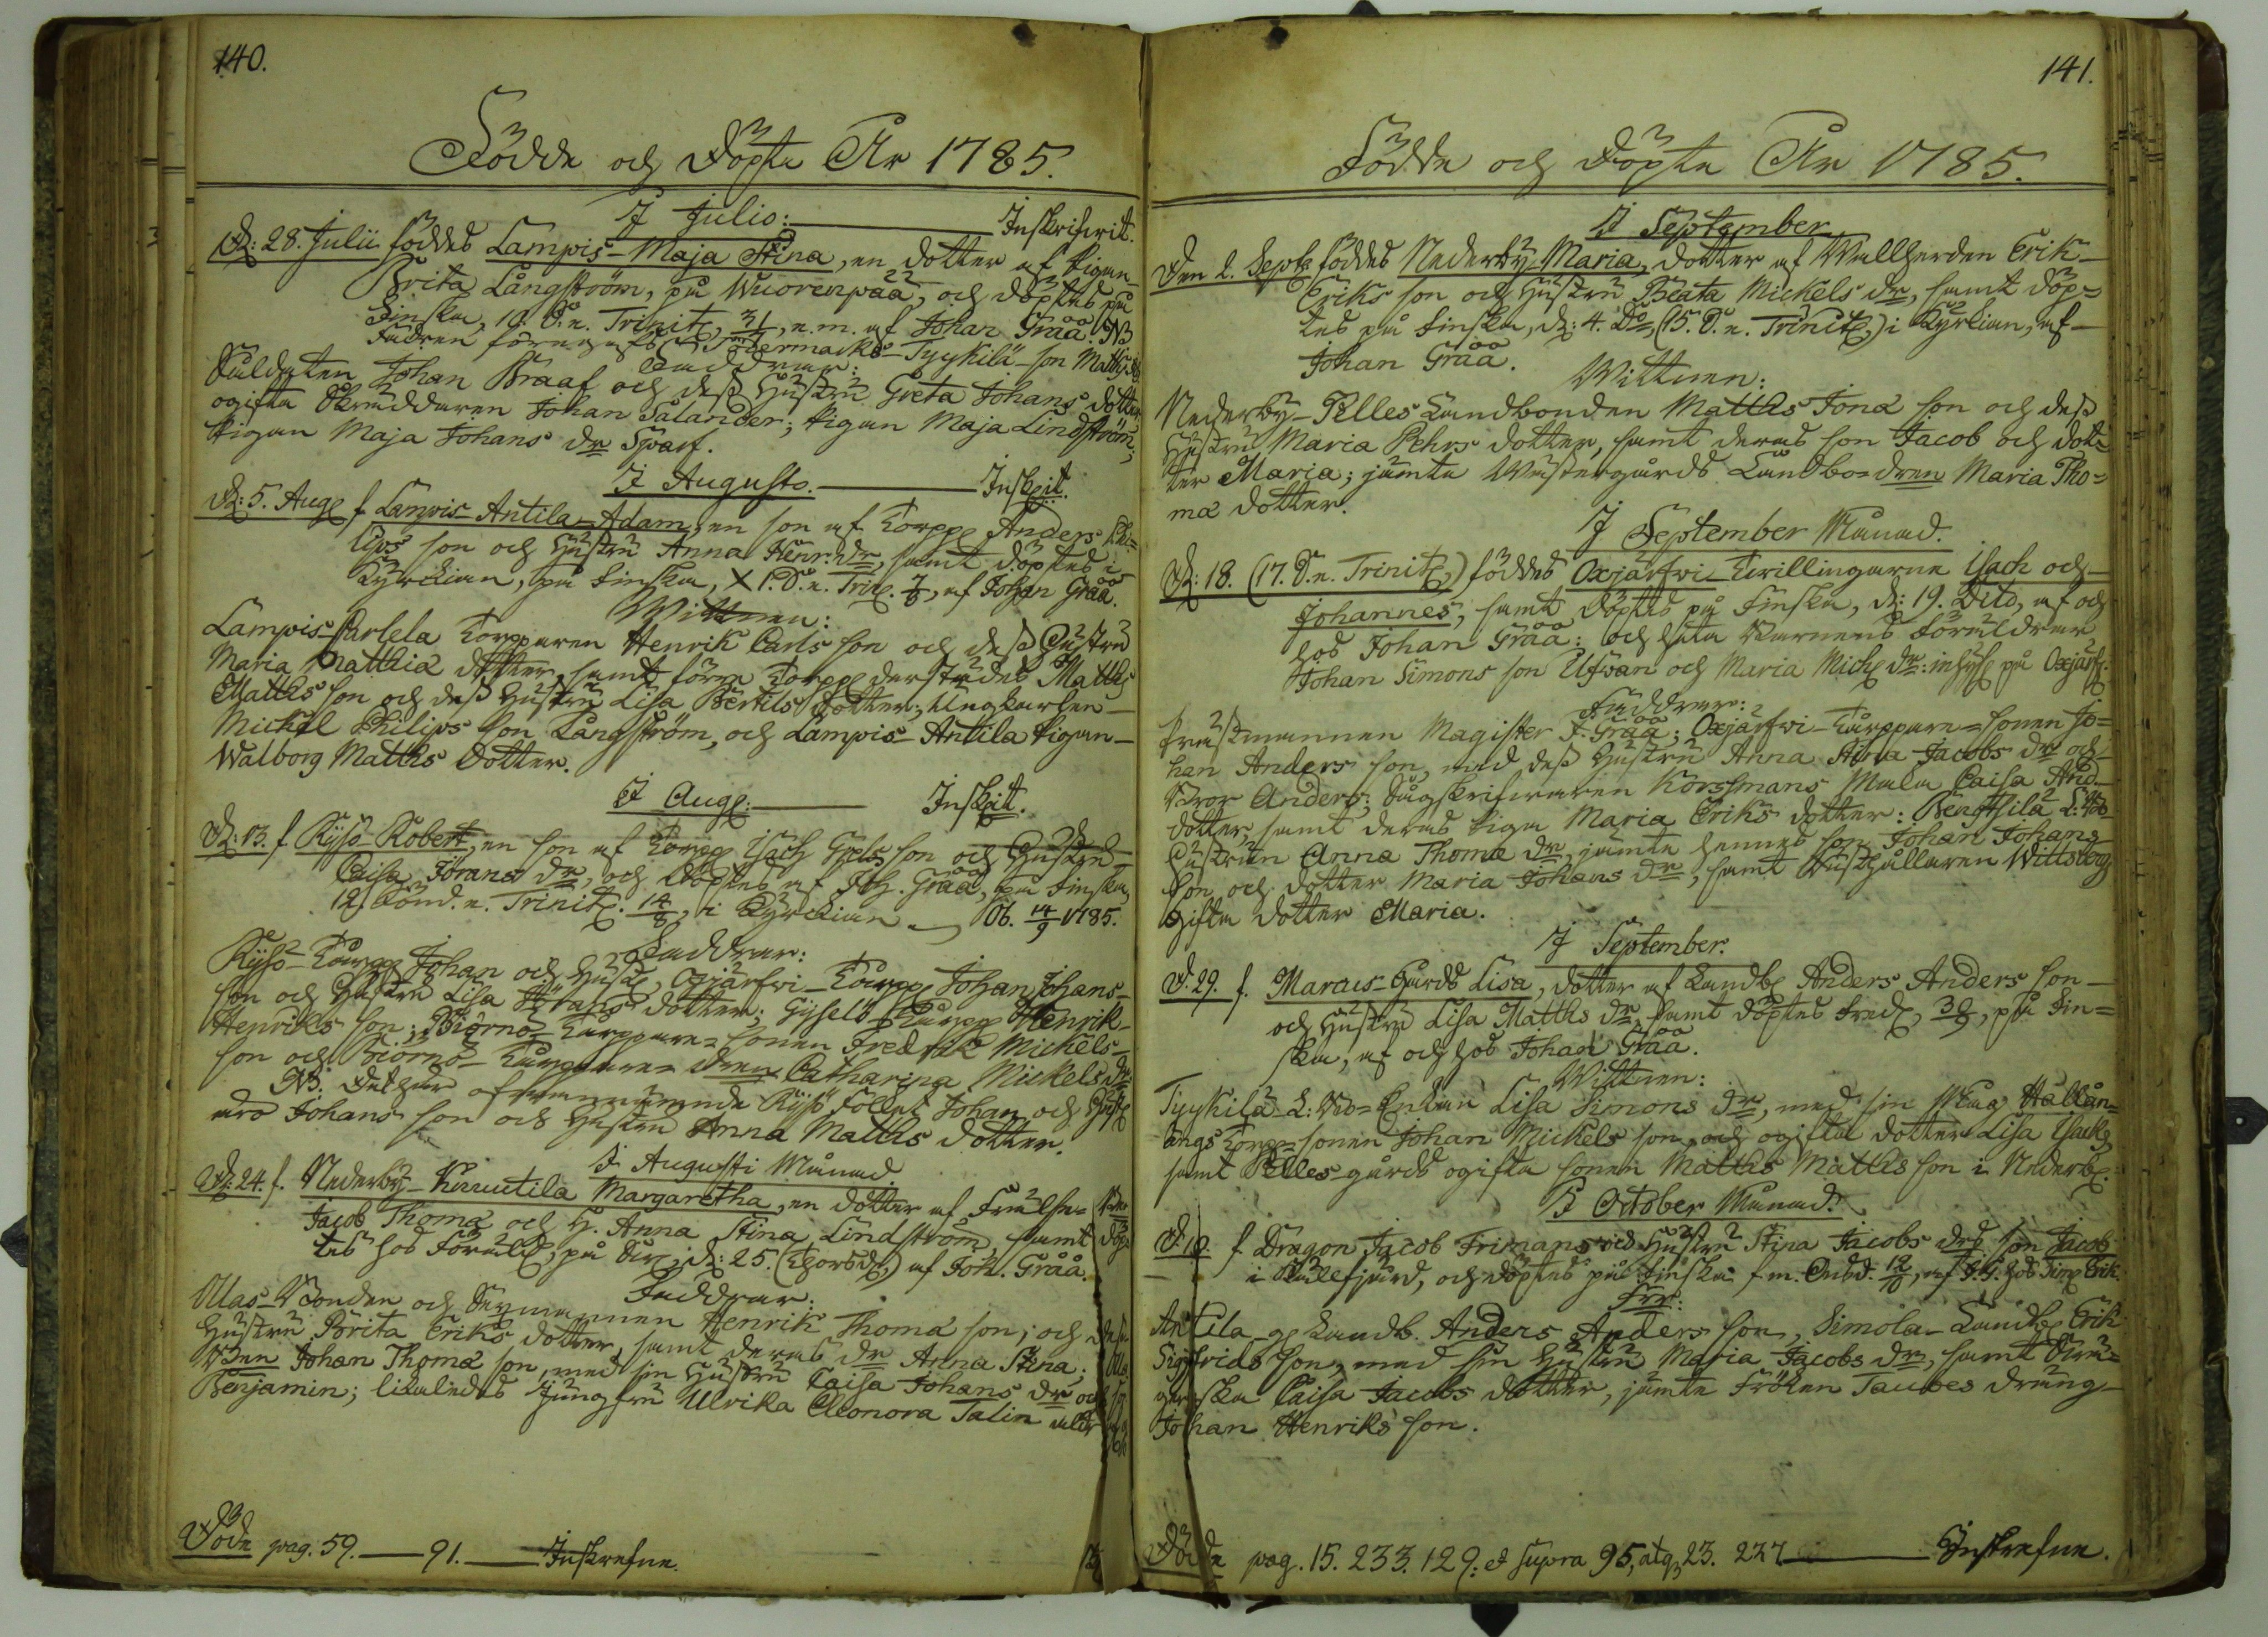 140.
Födde och Döpte År 1785.
I Julio: Inskrifwit.
D: 28. Julii föddes Lampis-Maja Stina, en dotter af Pigan
Brita Långström, på Wuorenpää, och döptes på
Finska, 10. S. e. Trinit, 31/7, e.m. af Johan Gråå. NB
Fadren föregafs Södermarks-Tyykilä-son Matths
Faddrar:
Soldaten Johan Braaf och dess Hustru Greta Johans dotter
ogifta Skräddaren Johan Salander; Pigan Maja Lindström;
Pigan Maja Johans dr Sparf.
I Augusto. Inskrit.
D: 5. Aug f Lampis-Antila-Adam, en son af Torpp Anders Phi=
lips son och Hustru Anna Henr. dr, samt döptes i
Kyrckian, på Finska, XI. S. e. Trin. 7/8, af Johan Gråå.
Wittnen:
Lampis-Carlela Torpparen Henrik Carls son och dess Hustru
Maria Matthiæ dotter, samt förra Torpp derstädes Matths
Matths son och dess Hustru Lisa Bertils dotter; Ungkarlen
Mickel Philips son Långström, och Lampis-Antila Pigan
Walborg Matths Dotter.
I Aug: Inskrit.
D: 13. f Kijsö-Robert, en son af Torpp Isach Gpels son och Hustru
Caisa Jörans dr, och döptes af Joh. Gråå, på Finska,
12 Sönd. e. Trinit. 14/8, i Kyrckian Ob. 14/9 1785.
Faddrar:
Kijsö-Torpp Johan och Hustr, Oxjärfwi-Torpp Johan Johans
son och Hustru Lisa Jörans dotter; Gijsels-Torpp Henrik
Henriks son; Biörnö-Torppare-sonen Fredrik Mickels
son och Biörnö-Torppare-dren Catharina Mickels dr
NB. Det par ofwannämnde Kijsö Follet Johan och Hustr
äro Johans son och Hustru Anna Matths dotter.
I Augusti Månad.
D: 24. f. Nederby-Knuutila Margaretha, en dotter af Frälse-
Jacob Thomæ och H. Anna Stina Lindström, samt döp
tes hos Föräld, på Fin, d: 25. (Thorsd,) af Joh. Gråå.
Faddrar:
Ulas-Bonden och Sexmannen Henrik Thomæ son; och dess
Hustru Brita Eriks dotter, samt deras dr Anna Stina; Ulas
Bden Johan Thomæ son, med sin Hustru Caisa Johans dr och
Benjamin; likaledes Jungfru Ulrika Eleonora Talin
Döde pag. 59. 91. Inskrefne.
141.
Födde och Döpte År 1785.
I September
Den 2. Sept föddes Nederby-Maria, dotter af Wallherden Erik
Eriks son och Hustru Beata Mickels dr, samt döp=
tes på Finska, d: 4. Do, (15. S. e. Trinit,) i Kyrkian, af
Johan Gråå.
Wittnen:
Nederby-Pelles Landbonden Matths Jonæ son och dess
Hustru Maria Pehrs dotter, samt deras son Jacob och dot=
ter Maria; jämte Wästergårds Landbo-dren Maria Tho=
mæ dotter.
I September Månad.
D: 18. (17. S. e. Trinit,) föddes Oxjärfwi-Twillingarne Isach och
Johannes, samt döptes på Finska, d: 19. Dito, af och
hos Johan Gråå; och heta Barnens Föräldrar
Johan Simons son Ufwan och Maria Mich dr: inhys på Oxjärf.
Faddrar:
Prästmannen Magister J: Gråå; Oxjärfwi-Torppare-sonen Jo=
han Anders son, med dess Hustru Anna Stina Jacobs dr och
Bror Anders; Sågskrifwaren Korssmans Maka Caisa And
dotter, samt deras Piga Maria Eriks dotter: Bengtsilä L. Bo
Hustrun Anna Thomæ dr, jämte hennes son Johan Johans
son och dotter Maria Johans dr, samt Rusthållaren Wittsberg
ogifta dotter Maria.
I September.
D. 29. f. Marcus-Gårds Lisa, dotter af Landb Anders Anders son
och Hustru Lisa Matths dr, samt döptes Fred, 30/9, på Fin=
ska, af och hos Johan Gråå.
Wittnen:
Tyykilä-L: Bo-Enkan Lisa Simons dr, med sin Mag Hallån=
ängs Torpp-sonen Johan Mickels son, och ogifta dotter Lisa Isachs
samt Pelles-gårds ogifta sonen Matths Matths son i Nederb.
I October Månad.
D. 10 f Dragon Jacob Frimans och Hustru Stina Jacobs drs son Jacob
i Kälefjärd, och döptes på Finska f.m. Onsd. 12/10, af J. G. hos Sim Erik.
Frr:
Antila-g Landb. Anders Anders son, Simola-Landb Erik
Sigfrids son, med sin Hustru Maria Jacobs dr, samt
Caisa Jacobs dotter, jämte Fröken Taubes dräng
Johan Henriks son.
Döde pag. 15. 233. 129: et supra 95, atq 23. 227 Inskrefne.